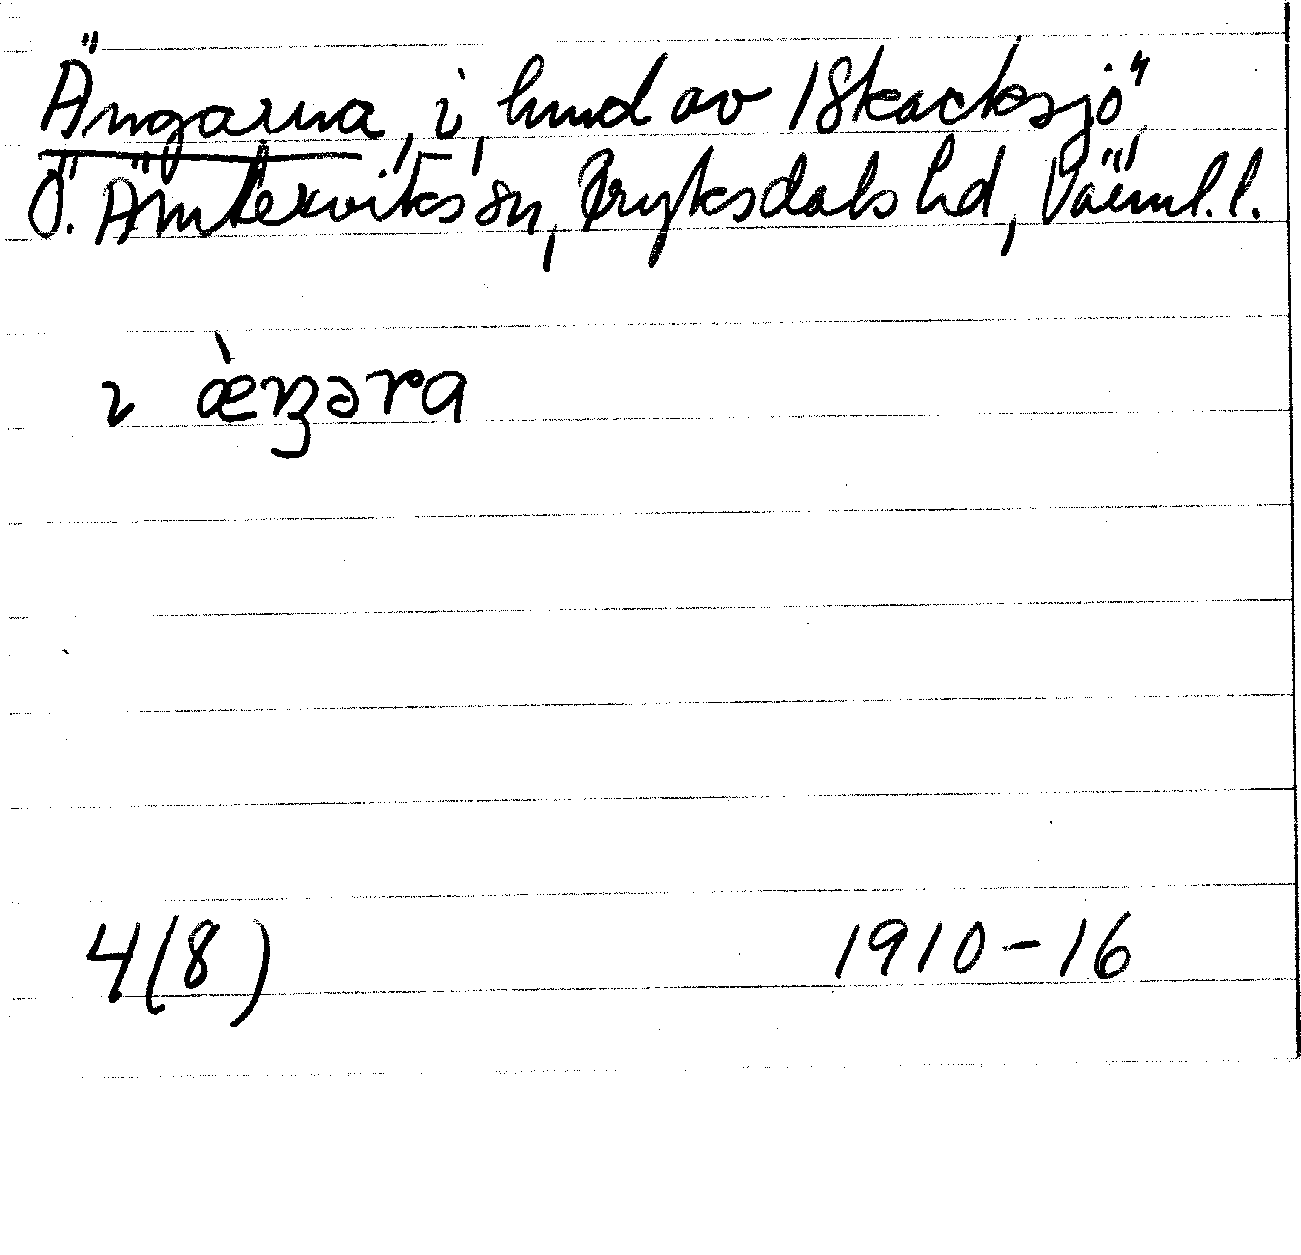 Ängarna, i, hmd av 1 Skacksjö,
Ö. Ämterviks sn, Fryksdals hd, Värml. l.
ı æ̀ŋəra
4(8) 1910-16